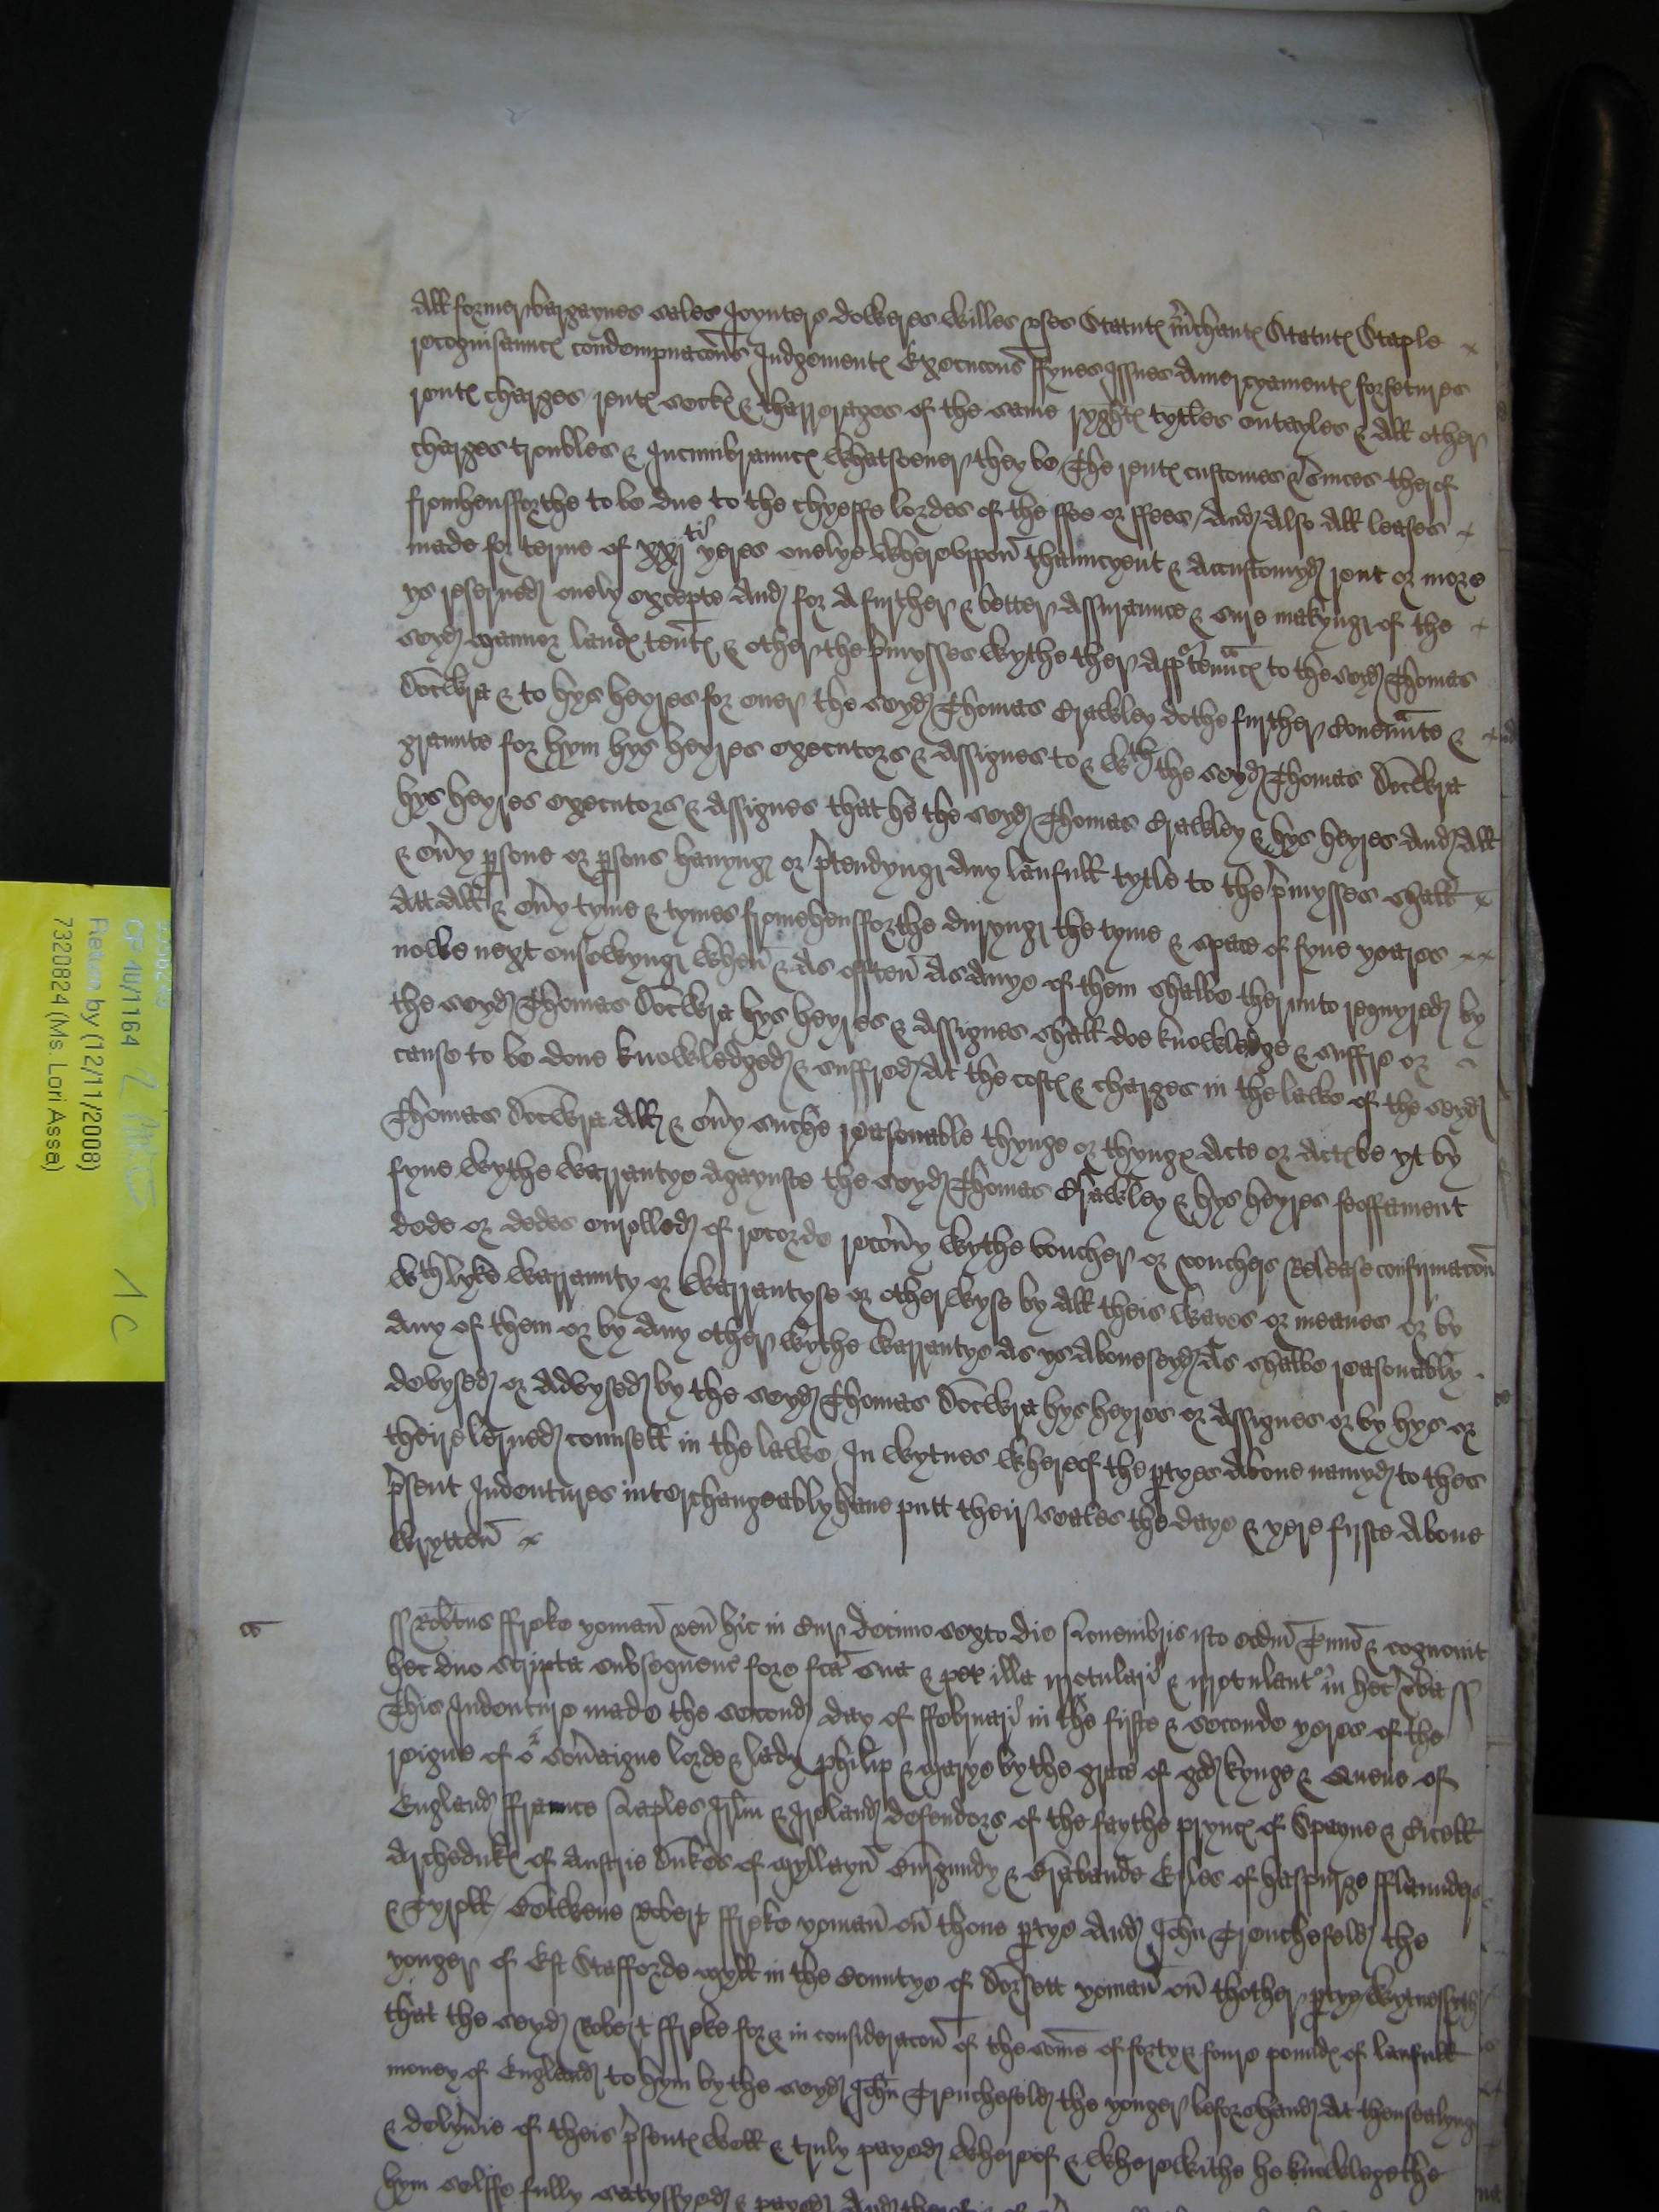 All former bargaynes sales Joynters doweres willes vses Statutꝭ m̃chantꝭ Statutꝭ Staple
recognisauncꝭ condempnacõns Judgementꝭ Execucõns ffynes Issues Amercyamentꝭ forfetures
rentꝭ charges rentꝭ seckꝭ & tharrerages of the same ryghtꝭ tytles entayles & all other
charges troubles & Incumbrauncꝭ whatsoeuer they be The rentꝭ customes & s̃uices therof
fromhensfforthe to be due to the chyeffe lordes of the ffee or ffees / And also all leases
made for terme of xxj ti yeres onelye wherevppon̄ thauncyent & accustomyd rent or more
ys reserued onely excepte And for A further & better assuraunce & sure makyng of the
seyd Mannor landꝭ ten̄tꝭ & other the p̃mysses wythe ther app'ten̄ncꝭ to the seyd Thomas
Docwra & to hys heyres for euer the seyd Thomas Crawley dothe further couen̄nte &
graunte for hym hys heyres executors & assignes to & wth the seyd Thomas Docwra
hys heyres executors & assignes that he the seyd Thomas Crawley & hys heyres And All
& eu̾y p̱sone or p̱sons hauyng or p̃tendyng any laufull tytle to the p̃mysses shall
att all & eu̾y tyme & tymes fromehensfforthe duryng the tyme & space of fyue yeares
nowe next ensewyng when̄ & as offten̄ as anye of them shalbe therunto requyred by
the seyd Thomas Docwra hys heyres & assignes shall doe knowledge & suffre or
cause to be done knowledged & suffred at the costꝭ & charges in the lawe of the seyd
Thomas Docwra all & eu̾y suche reasonable thynge or thyngꝭ acte or actꝭ be yt by
fyne wythe warrantye agaynste the seyd Thomas Crawley & hys heyres feoffament
dede or dedes enrolled of recorde recou̾y wythe voucher or vouchers Release confirmacõn
wth lyke warraunty or warrantyse or otherwyse by all theis wayes or meanes or by
any of them or by any other wythe warrantye as ys aboueseyd As shalbe reasonably
devysed or advysed by the seyd Thomas Docwra hys heyres or assignes or by hys or
theire lerned counsell in the lawe In wytnes whereof the p̱tyes aboue namyd to thes
p̃sent Indentures interchangeably haue putt their seales the daye & yere firste aboue
wrytten̄
ss Rob̃tus ffreke yoman̄ ven̄ hic in Cur̃ decimo sexto die Nouembris isto eod̃m T̃mi͂o & cognouit
hec duo scripta subsequenc̃ fore fc̃a sua & pet̃ illa irrotulari & irrotulant' in hec v̾ba ss
This Indenture made the second day of ffebruarij in the firste & seconde yeres of the
reigne of o r sou̾aigne lorde & lady Philip & Marye by the grace of god kynge & Quene of
England ffraunce Naples Jrl̃m & Ireland defendors of the faythe pryncꝭ of Spayne & Cicell
Archedukꝭ of Austrie Dukes of Myllayn̄ Burgundy & Brabande Erles of haspurge fflaunders
& Tyroll / Betwene Robert ffreke yoman̄ on̄ thone p̱tye And John Trenchefeld the
yonger of Est Stafforde Myll in the Countye of Dorsett yoman̄ on̄ thother p̱tye wytnessyth
that the seyd Robert ffreke for & in consideracõn of the som̄e of forty & foure poundꝭ of laufull
money of England to hym by the seyd John Trenchefeld the yonger beforehand at thensealyng
& delyu̾ie of theis p̃sentꝭ well & truly payed whereof & wherewithe he knowlegethe
hym selffe fully satysfyed & payed And therof
CP 40/1164
Return by (12/11/2008)
7320824 (Ms. Lori Asse)
1 C